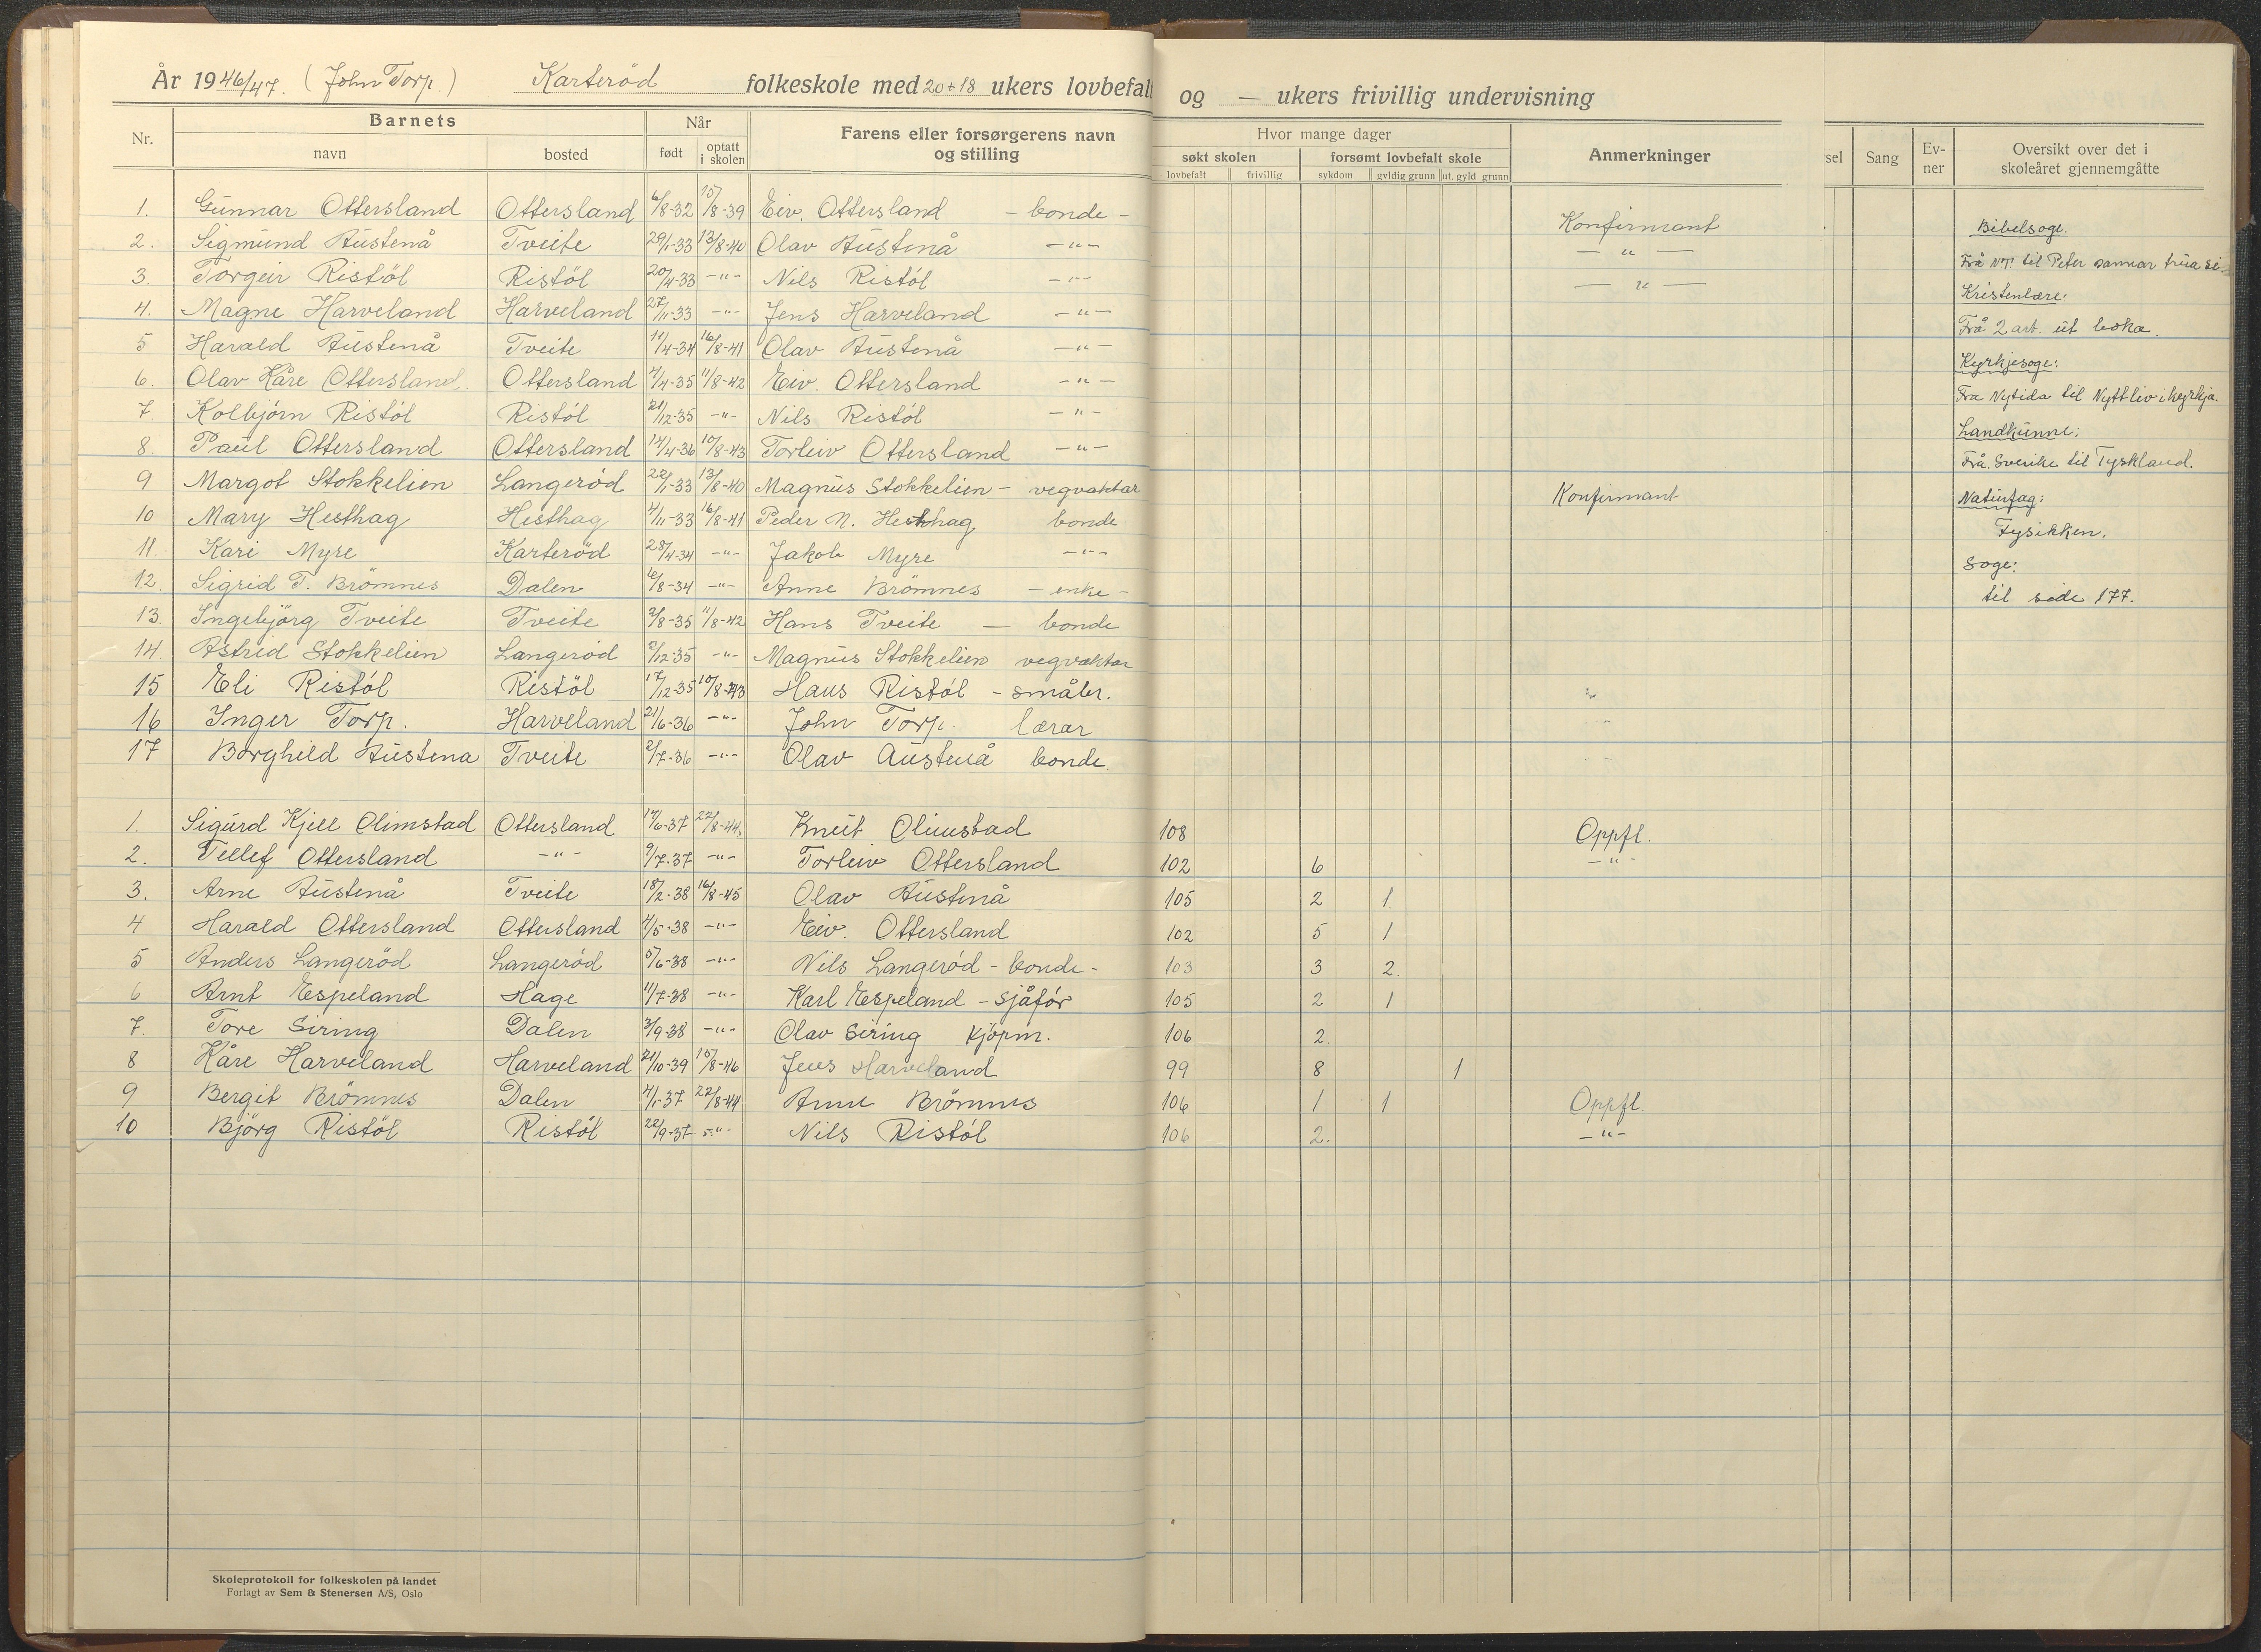 År 1946/47. (John Torp.) Karterød folkeskole med 20+18 ukers lovbefalt og — ukers frivillig undervisning
Nr. Barnets Når Farens eller forsørgerens navn og stilling Hvor mange dager Anmerkninger Sang Ev-ner Oversikt over det i skoleåret gjennemgåtte
navn bosted født optatt i skolen søkt skolen forsømt lovbefalt skole
lovbefalt frivillig sykdom gyldig grunn ut. gyld grunn
1. Gunnar Ottersland Ottersland 6/8-32 15/8-39 Eiv. Ottersland - bonde - Konfirmant
2. Sigmund Austenå Tveite 29/1-33 13/8-40 Olav Austenå -"- -"-
3. Torgeir Ristöl Ristöl 20/4-33 -"- Nils Ristöl -"- -"-
4. Magne Harveland Harveland 27/11-33 -"- Jens Harveland -"-
5 Harald Austenå Tveite 11/4-34 16/8-41 Olav Austenå -"-
6. Olav Kåre Ottersland Ottersland 4/4-35 11/8-42 Eiv. Ottersland -"-
7. Kolbjörn Ristöl Ristöl 21/12-35 -"- Nils Ristöl -"-
8. Paul Ottersland Ottersland 14/4-36 10/8-43 Torleiv Ottersland -"-
9 Margot Stokkelien Langeröd 22/1-33 13/8-40 Magnus Stokkelien - vegvaktar Konfirmant
10 Mary Hesthag Hesthag 4/11-33 16/8-41 Peder N. Hesthag bonde
11. Kari Myre Karteröd 28/4-34 -"- Jakob Myre -"-
12. Sigrid T. Brömnes Dalen 16/8-34 -"- Anne Brömnes - enke -
13. Ingebjörg Tveite Tveite 2/8-35 11/8-42 Hans Tveite — bonde
14. Astrid Stokkelien Langeröd 2/12-35 -"- Magnus Stokkelien vegvaktar
15 Eli Ristöl Ristöl 17/12-35 10/8-43 Hans Ristöl - småbr.
16 Inger Torp. Harveland 21/6-36 -"- John Torp. lærar
17 Borghild Austenå Tveite 2/7-36 -"- Olav Austenå bonde
1. Sigurd Kjell Olimstad Ottersland 17/6-37 22/8-44 Knut Olimstad 108 Oppfl.
2. Tellef Ottersland -"- 9/7-37 -"- Torleiv Ottersland 102 6 -"-
3. Arne Austenå Tveite 18/2-38 16/8-45 Olav Austenå 105 2 1
4 Harald Ottersland Ottersland 4/5-38 -"- Eiv. Ottersland 102 5 1
5 Anders Langeröd Langeröd 5/6-38 -"- Nils Langeröd - bonde - 103 3 2.
6 Arnt Espeland Hage 11/7-38 -"- Karl Espeland - sjåför 105 2 1
7. Tore Siring Dalen 3/9-38 -"- Olav Siring kjöpm. 106 2.
8 Kåre Harveland Harveland 21/10-39 15/8-46 Jens Harveland 99 8 1
9 Bergit Brömnes Dalen 4/1-37 22/8-44 Anne Brömnes 106 1 1 Oppfl.
10 Björg Ristöl Ristöl 22/9-37 -"- Nils Ristöl 106 2. -"-
Bibelsoge.
Frå N.T. til Peter sannar trua si.
Kristenlære:
Frå 2 art. ut boka.
Kyrkjesoge:
Fra Nytida til Nytt liv i kyrkja.
Landkunne:
Frå Sverike til Tyskland.
Naturfag:
Fysikken.
Soge:
til side 177.
Skoleprotokoll for folkeskolen på landet
Forlagt av Sem & Stenersen A/S, Oslo